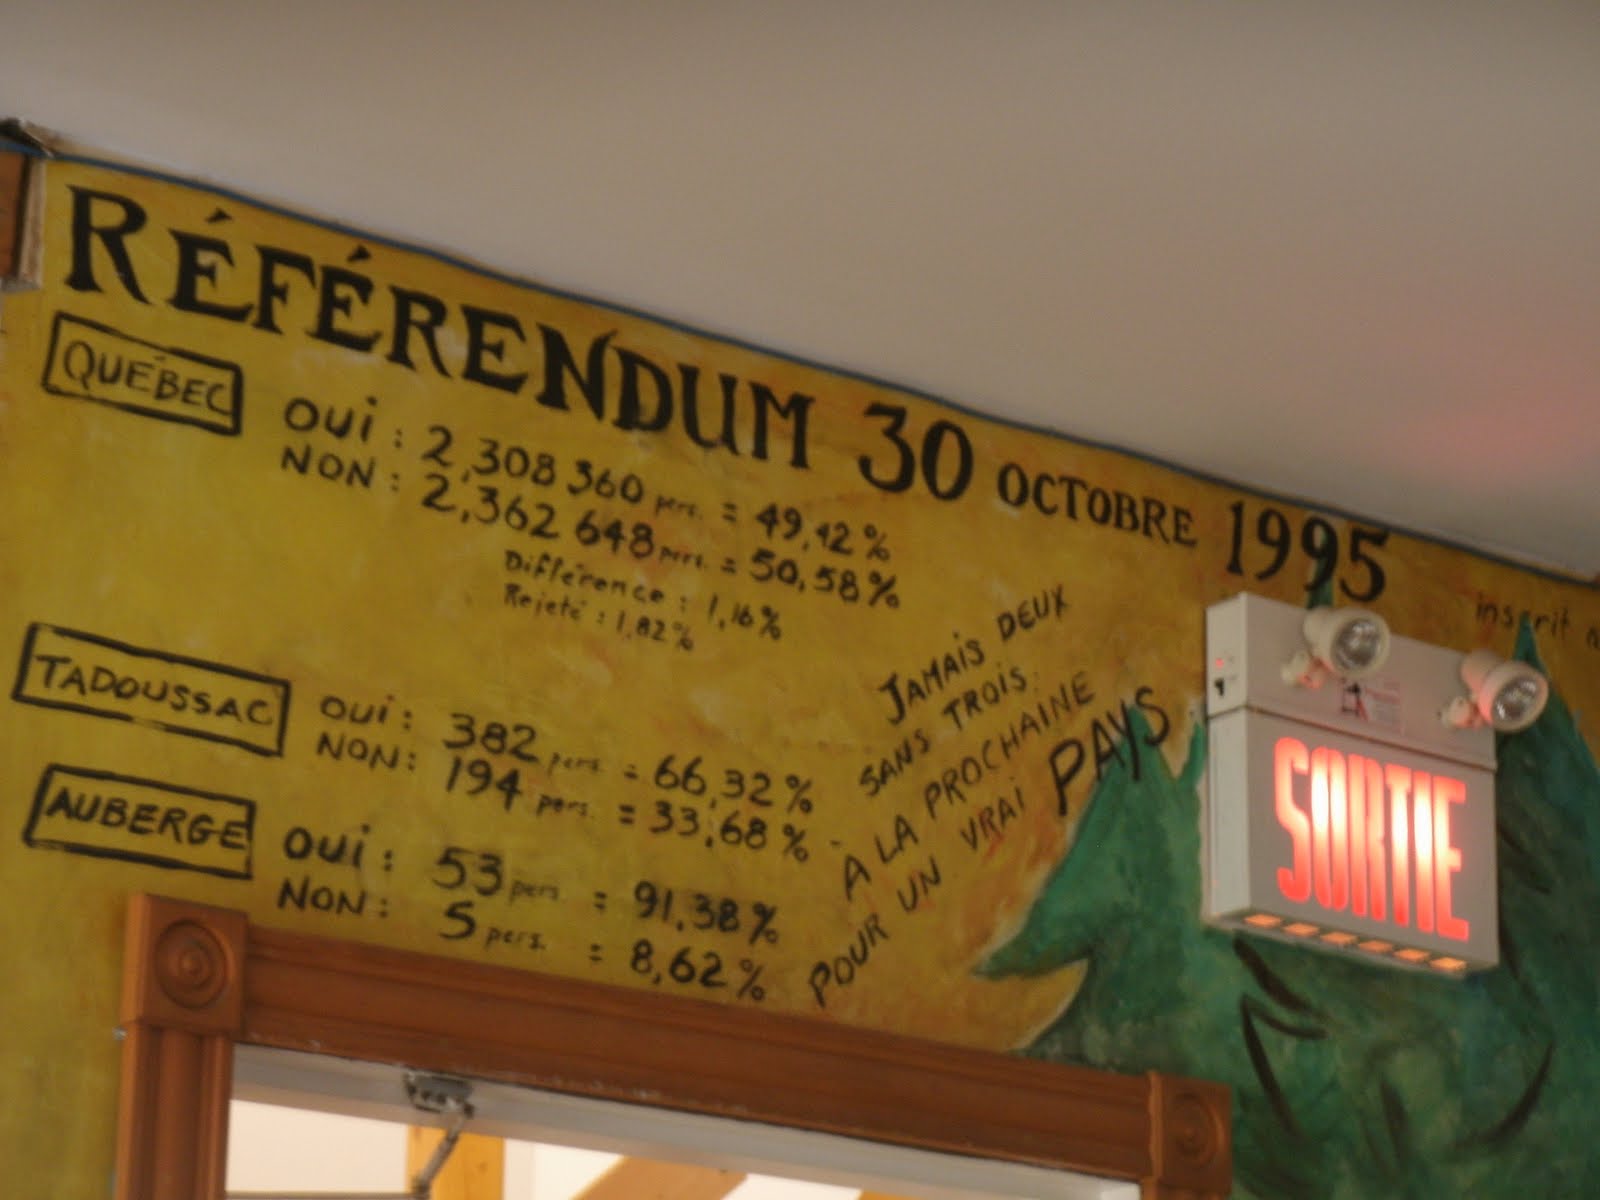 RÉFÉRENDUM 30 OCTOBRE 1995
QUÉBEC
OUI : 2,308 360 pers. = 49,42 %
NON : 2,362 648 pers. = 50,58 %
Différence : 1,16 %
Rejeté : 1,82 %
TADOUSSAC
OUI : 382 pers. = 66,32 %
NON : 194 pers. = 33,68 %
AUBERGE
OUI : 53 pers. = 91,38 %
NON : 5 pers. = 8,62 %
JAMAIS DEUX
SANS TROIS.
À LA PROCHAINE
POUR UN VRAI PAYS
inscrit
SORTIE